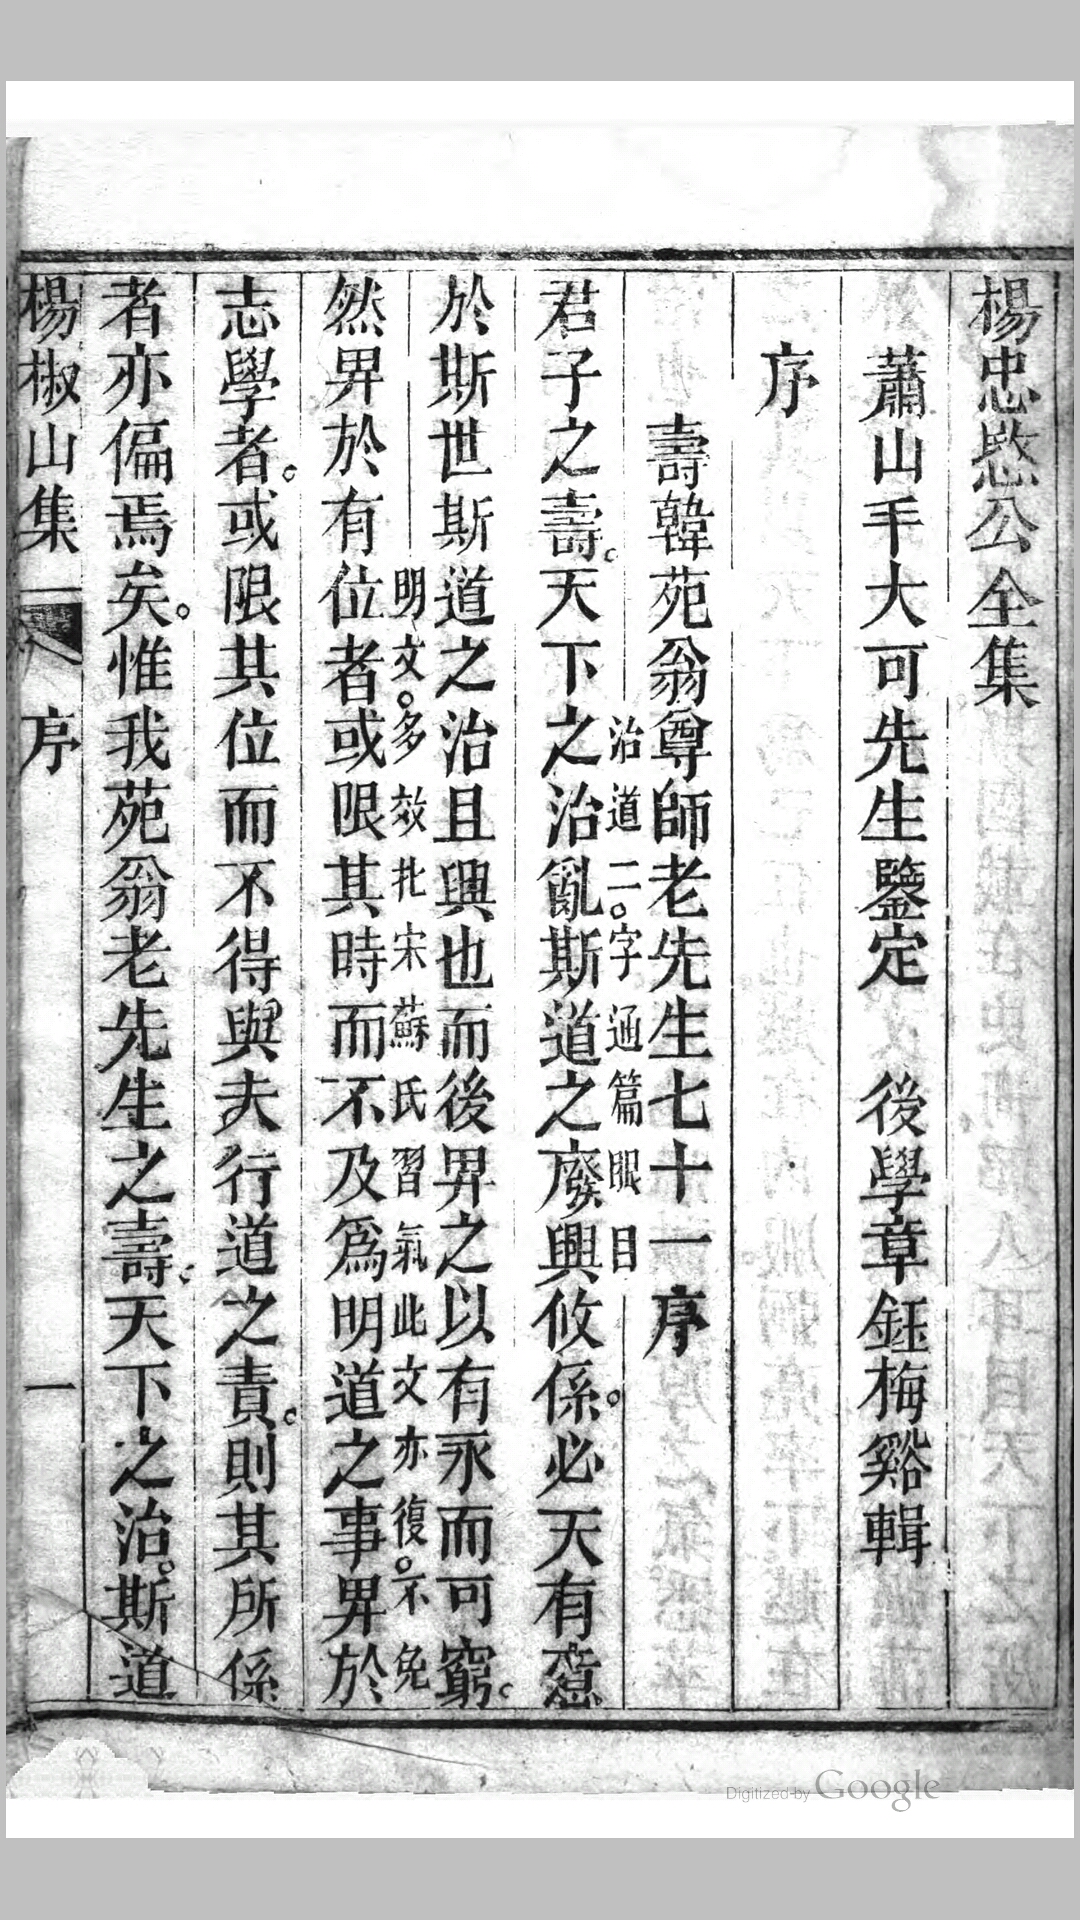 楊忠愍公全集
蕭山毛大可先生鑒定　後學章鈺梅谿輯
序
壽韓苑翁尊師老先生七十一序
治道二。字通篇眼目
君子之壽。天下之治亂斯道之廢興攸係。必天有意
於斯世斯道之治且興也而後畀之以有永而可窮。
明文。多效批宋蘇氏習氣此文亦復。不免
然畀於有位者或限其時而不及爲明道之事畀於
志學者。或限其位而不得與夫行道之責。則其所係
者亦偏焉矣。惟我苑翁老先生之壽。天下之治。斯道
楊椒山集　序　一
Digitized by Google